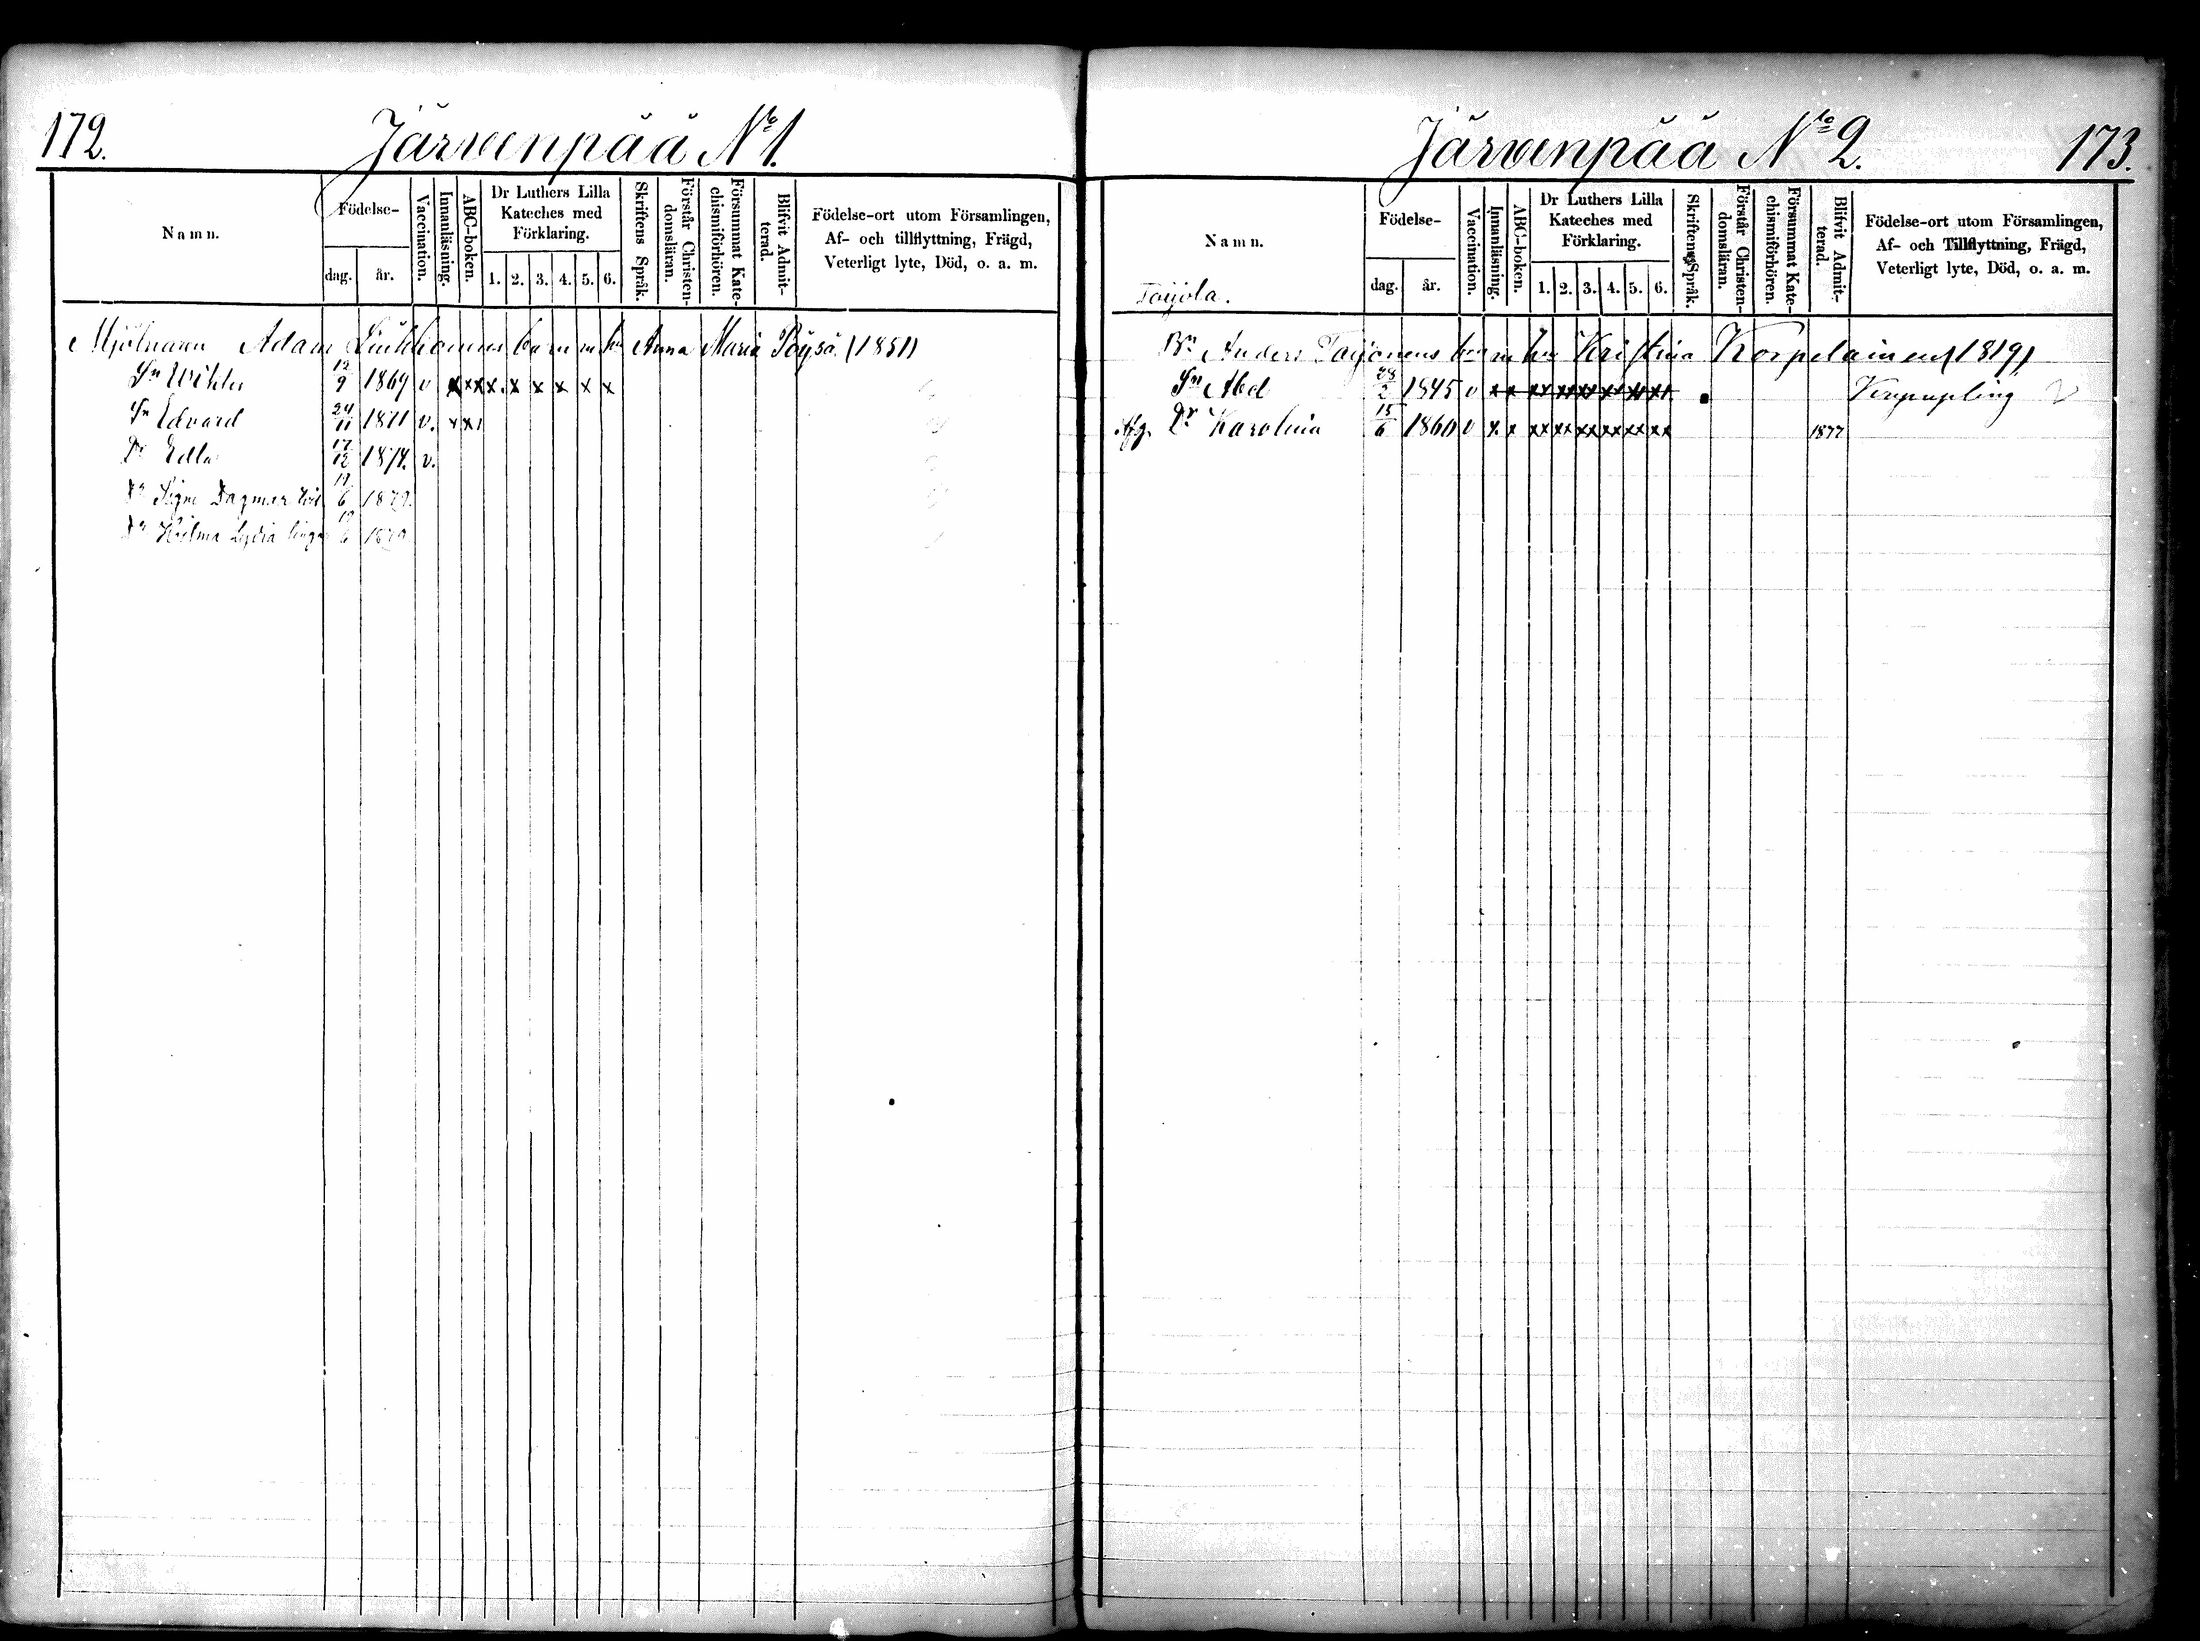 172.
Järvenpää No 1.
Namn.
Födelse-
dag.
år.
Vaccination.
Innanläsning.
ABC-boken.
Dr Luthers Lilla
Kateches med
Förklaring.
1. 2. 3. 4. 5. 6.
Skriftens Språk.
Förstår Christen-
domsläran.
Försummat Kate-
chismiförhören.
Blifvit Admit-
terad.
Födelse-ort utom Församlingen,
Af- och tillflyttning, Frägd,
Veterligt lyte, Död, o. a. m.
Mjölnaren Adam barn m hu Anna Maria Pöysä (1851)
Sn 12/9 1869 v x xx x x x x x x
Sn Edvard 24/11 1871 v. x xx
Dr Edla 17/12 1874. v.
Dr Signe Dagmar 19/6 1879.
Dr Hilma Lydia 19/6 1879.
Järvenpää No 2.
173.
Namn.
Toijola.
Födelse-
dag.
år.
Vaccination.
Innanläsning.
ABC-boken.
Dr Luthers Lilla
Kateches med
Förklaring.
1. 2. 3. 4. 5. 6.
Skriftens Språk.
Förstår Christen-
domsläran.
Försummat Kate-
chismiförhören.
Blifvit Admit-
terad.
Födelse-ort utom Församlingen,
Af- och Tillflyttning, Frägd,
Veterligt lyte, Död, o. a. m.
Bn Anders Toijonens barn m hu Kristina Korpelainen (1819)
Sn Abel 28/2 1845 v x x xx xx xx xx xx xx
Dr Karolina 15/6 1860 v x x xx xx xx xx xx xx 1877